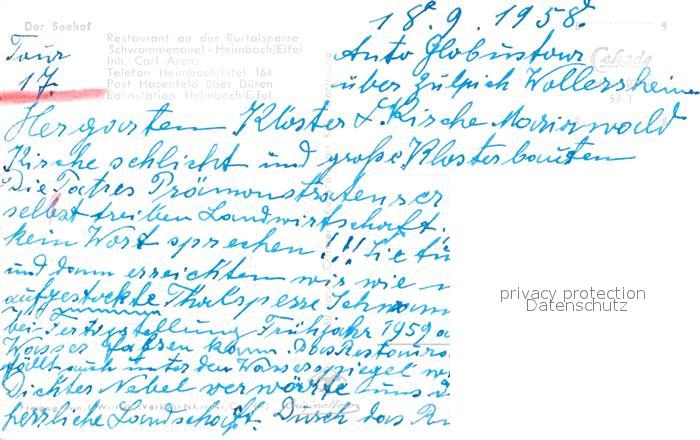 18. 9. 1958.
Der Seehof
Restaurant an der Rurtalsperre
Schwammenauel - Heimbach/Eifel
Inh. Carl Arens
Telefon Heimbach/Eifel 164
Post Hasenfeld über Düren
Bahnstation Heimbach/Eifel
Cekade
Tour
17.
Auto Globustour
über Zülpich Wollersheim
Hergarten Kloster & Kirche Mariawald
Kirche schlicht und große Klosterbauten
Die Patres Prämonstratenser
selbst treiben Landwirtschaft.
kein Wort sprechen!!! Sie
und dann erreichten wir wie
aufgestockte Thalsperre Schwamm
bei Fertigstellung Frühjahr 1959
Wasser fahren kann. Das Restaura
fällt auch unter den Wasserspiegel
Dichter Nebel verwörte uns
herrliche Landschaft. Durch das
privacy protection
Datenschutz